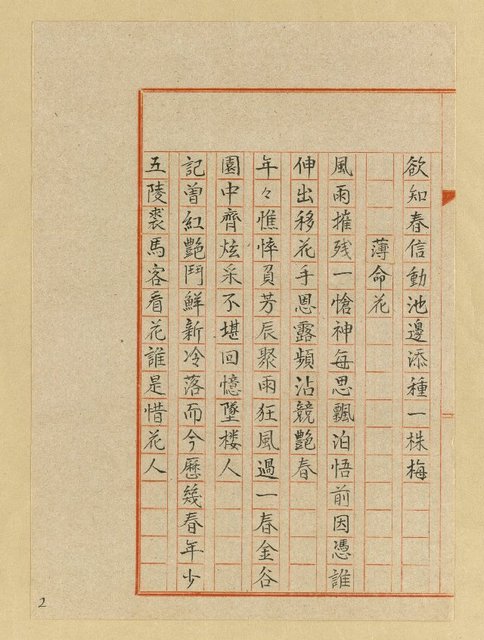 欲知春信動池邊添種一株梅
薄命花
風雨摧残一愴神每思飄泊悟前因憑誰
伸出移花手恩露頻沾競艷春
年々憔悴負芳辰聚雨狂風過一春金谷
園中齊炫采不堪回憶墜楼人
記曾紅艷鬥鮮新冷落而今歷幾春年少
五陵裘馬客看花誰是惜花人
2